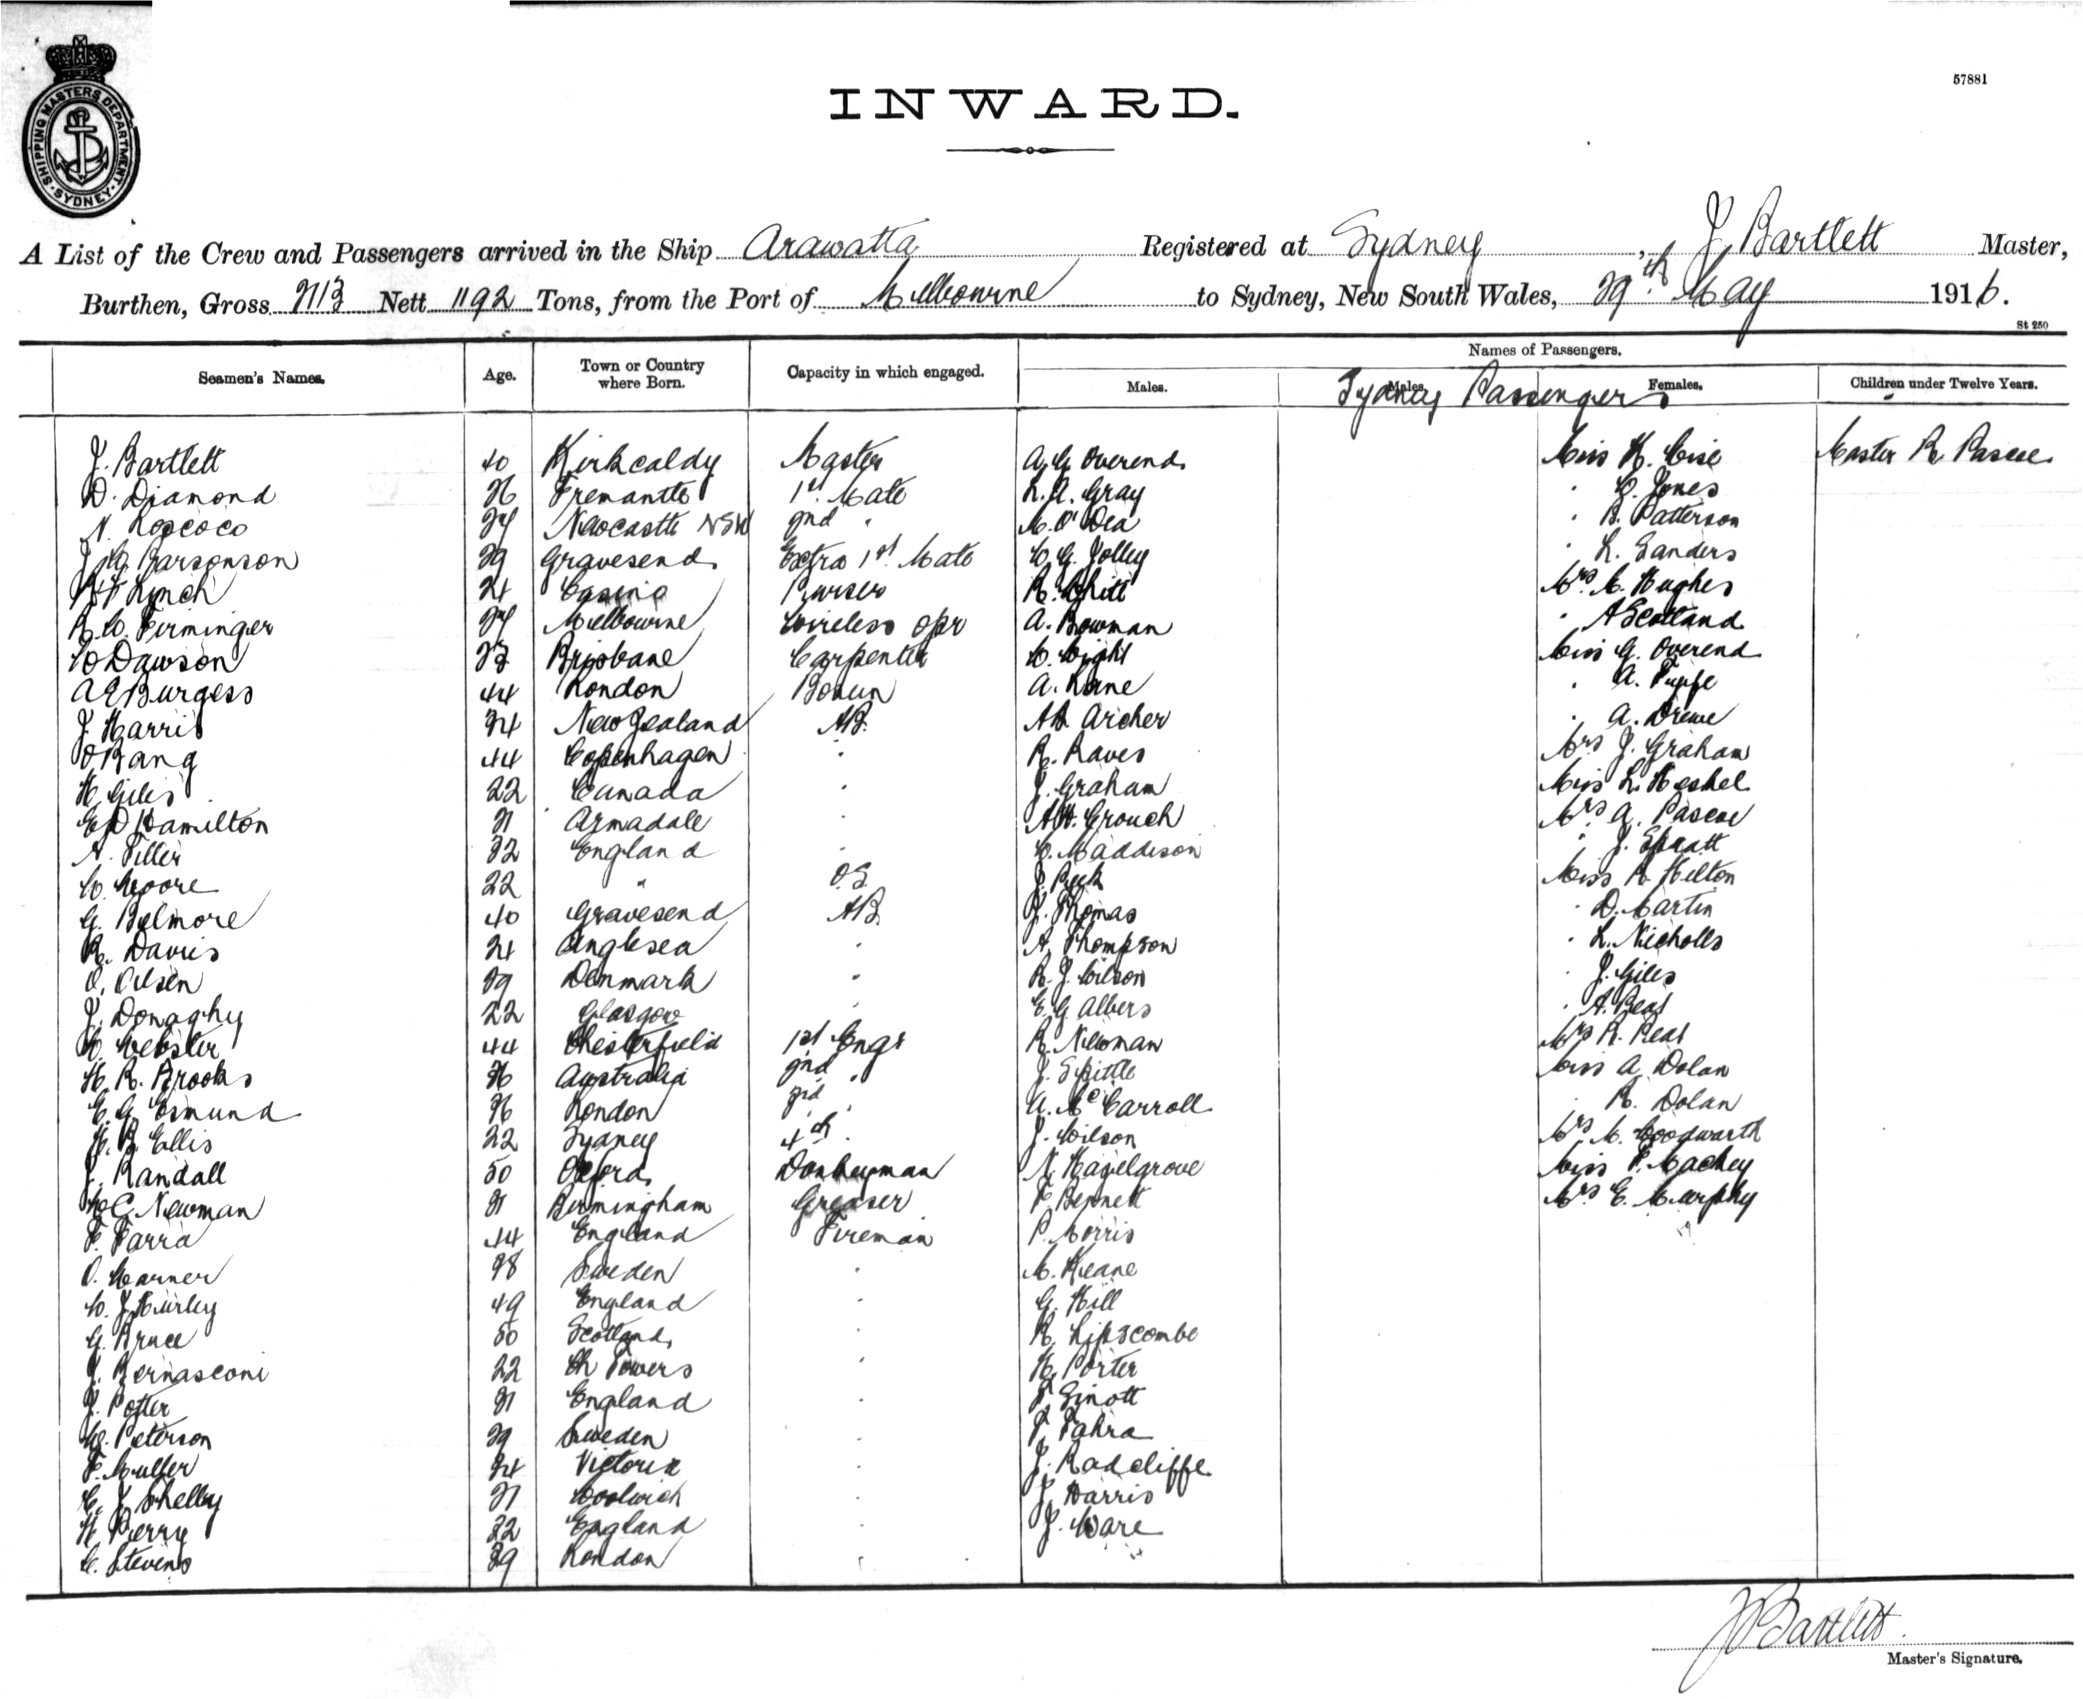 SHIPPING MASTERS DEPARTMENT · SYDNEY ·
57881
INWARD.
A List of the Crew and Passengers arrived in the Ship Arawatta Registered at Sydney, J Bartlett Master,
Burthen, Gross 2113 Nett 1192 Tons, from the Port of Melbourne to Sydney, New South Wales, 29th May 1916.
St 250
Names of Passengers.
Seamen's Names. Age. Town or Country where Born. Capacity in which engaged. Males. Males. Females. Children under Twelve Years.
Sydney Passengers
J. Bartlett 40 Kirkcaldy Master A. G. Overend Miss H. Wise Master R. Pascoe
D. Diamond 26 Fremantle 1st Mate L. A. Gray " Jones
N. Roscoco Newcastle NSW 2nd " M. O'Dea " B. Patterson
Parsonson 29 Gravesend Extra 1st Mate W. G. Jolley " L. Sanders
Lynch 24 Casino Purser R. White Mrs M. Hughes
R. W. Firminger Melbourne Wireless Opr A. Bowman " A Scotland
W Dawson 23 Brisbane Carpenter W. Wight Miss G. Overend
A E Burgess 44 London Bosun A. Lane " A.
J Harris 34 New Zealand AB. Archer " A. Drewe
O Bang 44 Copenhagen " R. Raves Mrs J. Graham
H Giles 22 Canada " J. Graham Miss L. Heshel
Hamilton 21 Armadale " Crouch Mrs A. Pascoe
A. Tiller 32 England " C. Maddison " J. Spratt
W. Moore 22 " O.S. J. Peck Miss R. Hilton
G. Belmore 40 Gravesend AB. J. Thomas " D. Martin
R. Davies 24 Anglesea " A. Thompson " L. Nicholls
O. Olsen 29 Denmark " R. J. Wilson " J. Giles
J. Donaghy 22 Glasgow " E. G. Albers " A. Peat
W. Webster 44 Chesterfield 1st Engr R. Newman Mrs R. Peat
H. R. Brooks 36 Australia 2nd " J. Spittle Miss A Dolan
E. G. Esmund 36 London 3rd " A. McCarroll " R. Dolan
H. B. Ellis 22 Sydney 4th " J. Wilson Mrs M. Woodwarth
J. Randall 50 Oxford Donkeyman N. Hazelgrove Miss F. Mackey
Newman 31 Birmingham Greaser F Bennett Mrs E. Murphy
F. Farra 44 England Fireman P. Morris
O. Warner 38 Sweden " M. Keane
W. J Hurley 49 England " G. Hill
G. Bruce 50 Scotland " R. Lipscombe
J. Bernasconi 22 Ch Towers " H. Porter
J. Potter 31 England " F Sinott
W. Peterson 39 Sweden " F. Fahra
F. Muller 34 Victoria " J. Radcliffe
C. J Shelley Woolwich " J. Harris
H Perry 22 England " J. Ware
C. Stevens 39 London "
J Bartlett
Master's Signature.